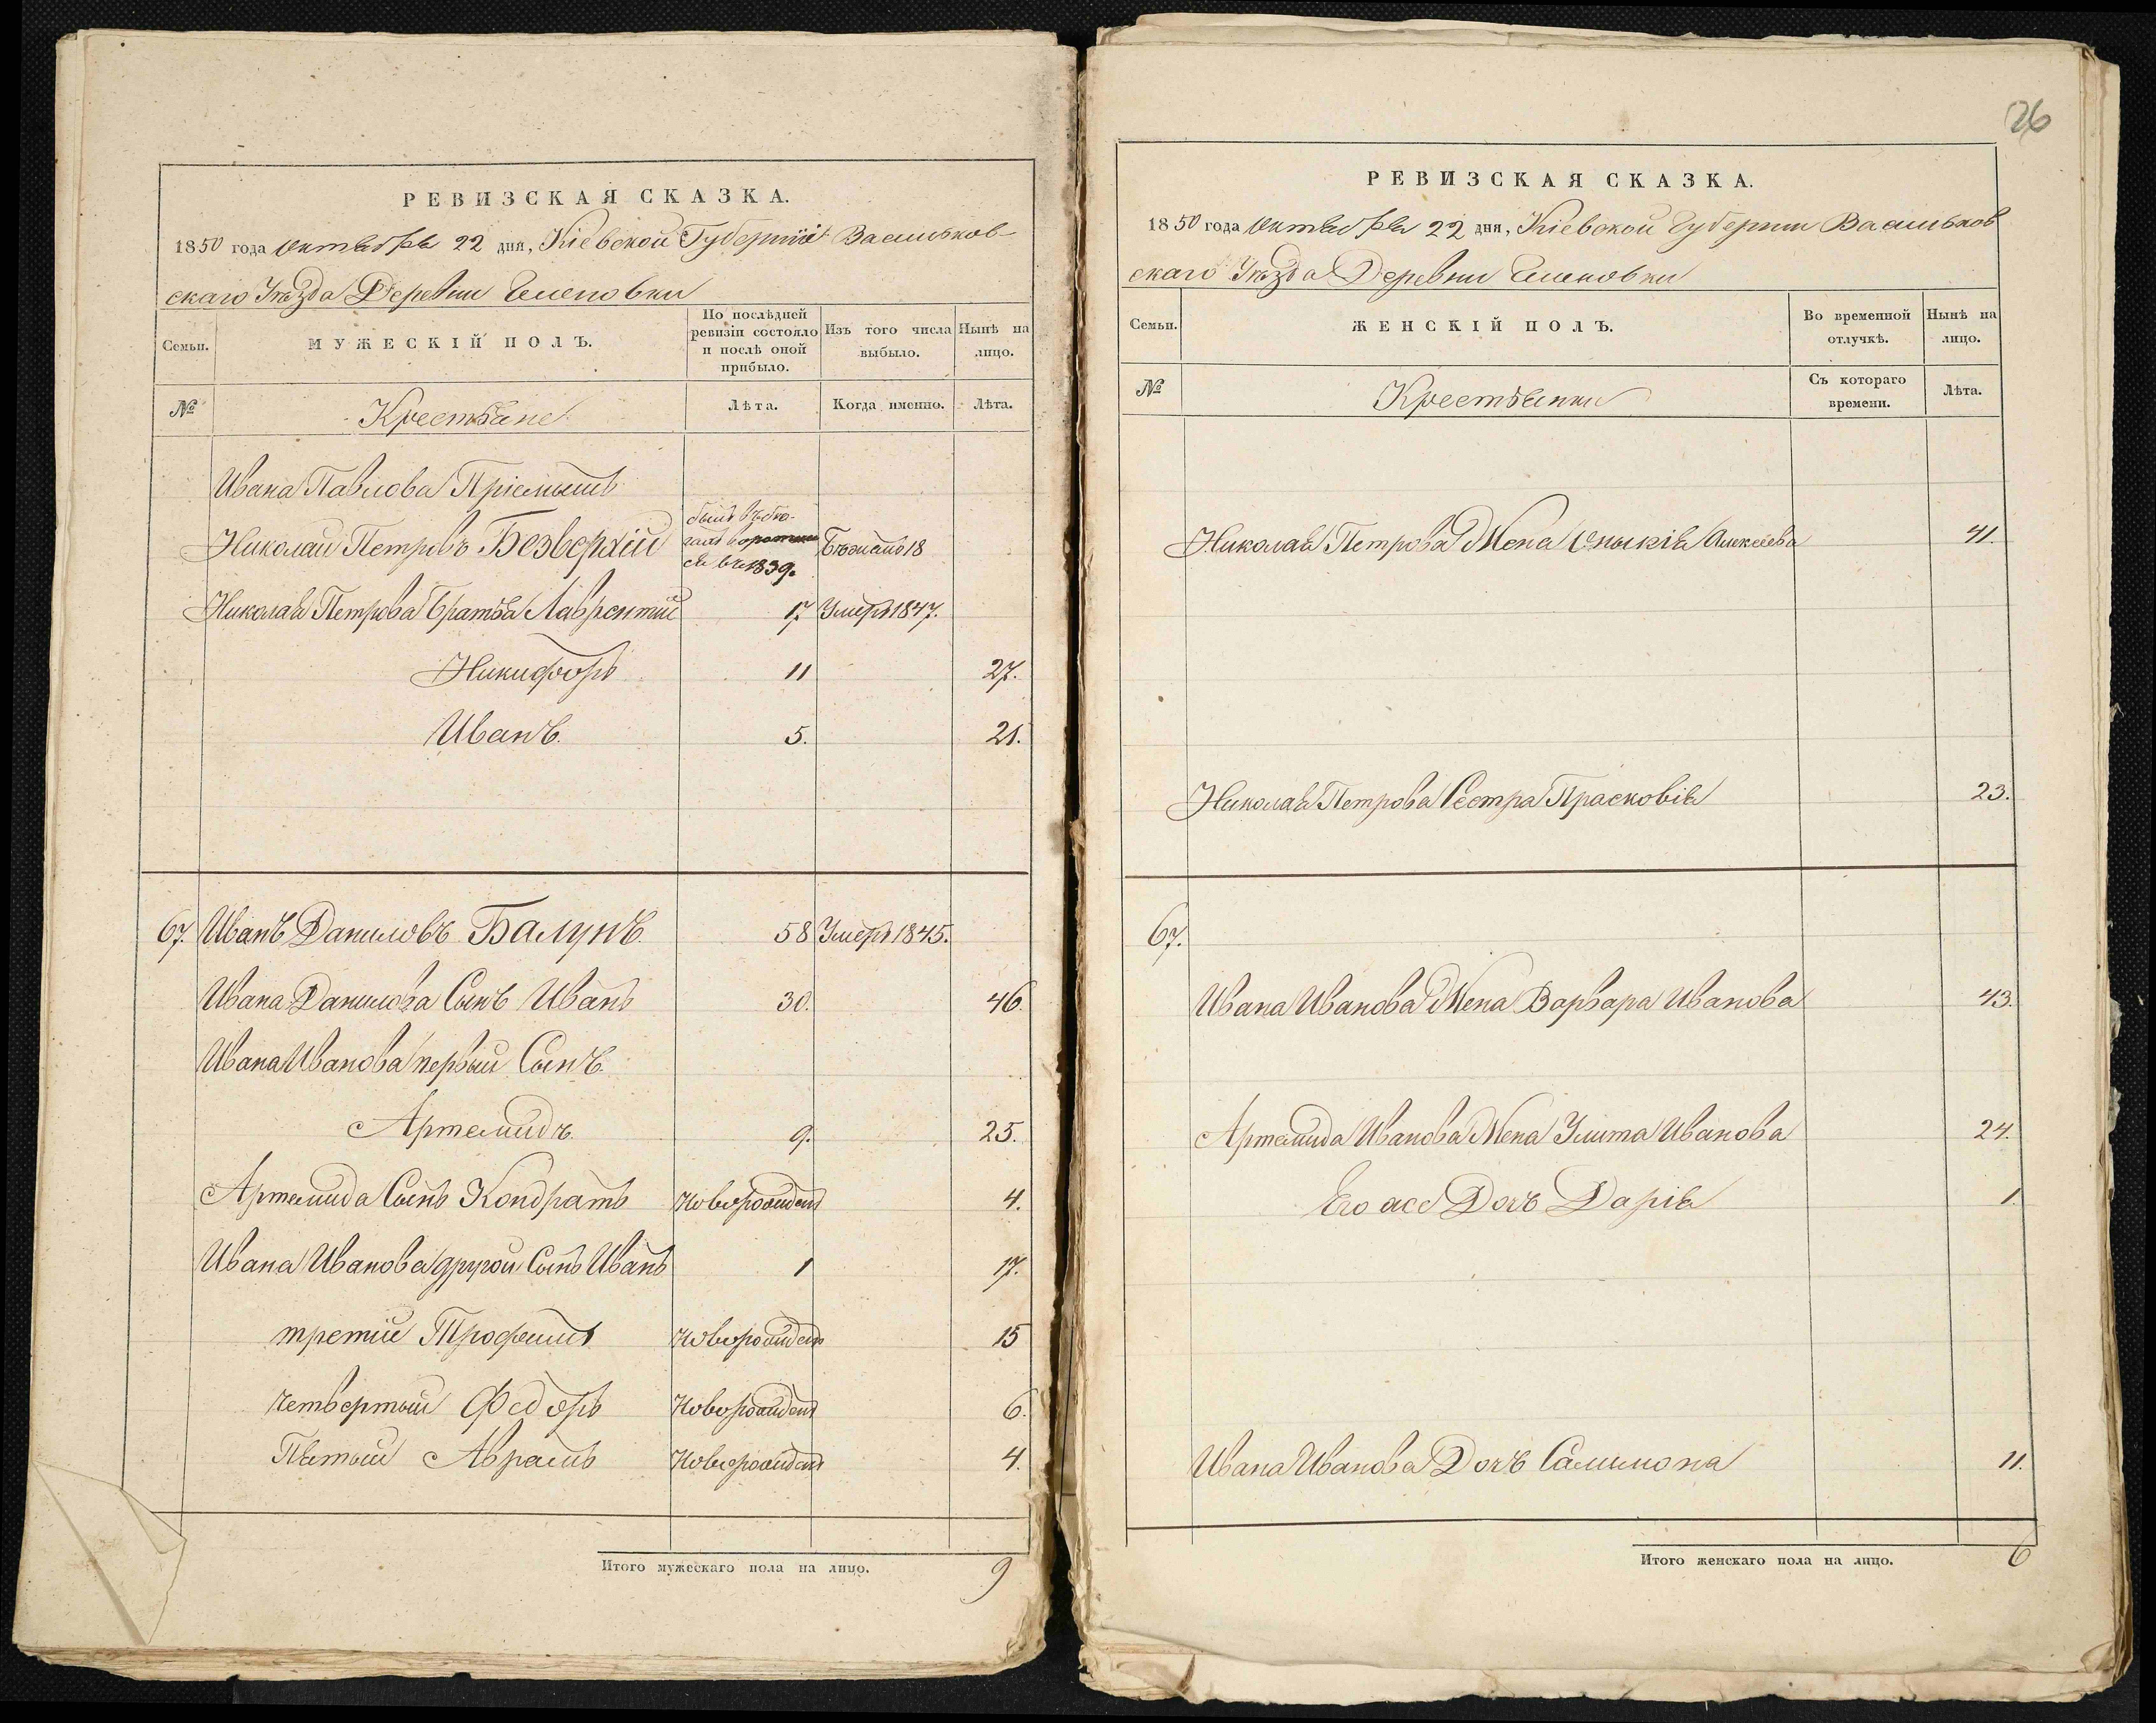 РЕВИЗСКАЯ СКАЗКА.
1850 года Октября 22 дня, Кіевской Губерніи Васильков-
скаго Уѣзда Деревни Еленовки
Семьи.
МУЖЕСКІЙ ПОЛЪ.
По послѣдней
ревизіи состояло
и послѣ оной
прибыло.
Изъ того числа
выбыло.
Нынѣ на
лицо.
№
Крестьяне
Лѣта.
Когда именно.
Лѣта.
Ивана Павлова Пріемышъ
Николай Петровъ Безверхій
былъ въ бѣ-
гахъ воротил
ся въ 1839.
Бѣжалъ 18
Николая Петрова братья Лаврентій 17 Умеръ 1847.
Никифоръ 11 27.
Иванъ. 5. 21.
67. Иванъ Даниловъ Балунъ. 58 Умеръ 1845.
Ивана Данилова Сынъ Иванъ 30. 46.
Ивана Иванова первый Сынъ.
Артемидъ. 9. 25.
Артемида Сынъ Кондратъ новорожденъ 4.
Ивана Иванова другой Сынъ Иванъ 1 17.
третій Трофимъ новорожденъ 15
четвертый Федоръ новорожденъ 6.
Пятый Аврамъ новорожденъ 4.
Итого мужескаго пола на лицо. 9
26
РЕВИЗСКАЯ СКАЗКА.
1850 года Октября 22 дня, Кіевской Губерніи Васильков
скаго Уѣзда Деревни Еленовки
Семьи.
ЖЕНСКІЙ ПОЛЪ.
Во временной
отлучкѣ.
Нынѣ на
лицо.
№
Крестьянки
Съ котораго
времени.
Лѣта.
Николая Петрова Жена Алексеева 41.
Николая Петрова Сестра Прасковія 23.
67.
Ивана Иванова Жена Варвара Иванова 43.
Артемида Иванова Жена Улита Иванова 24.
Его же Дочь Дарія 1.
Ивана Иванова Дочь Салимона 11.
Итого женскаго пола на лицо. 6